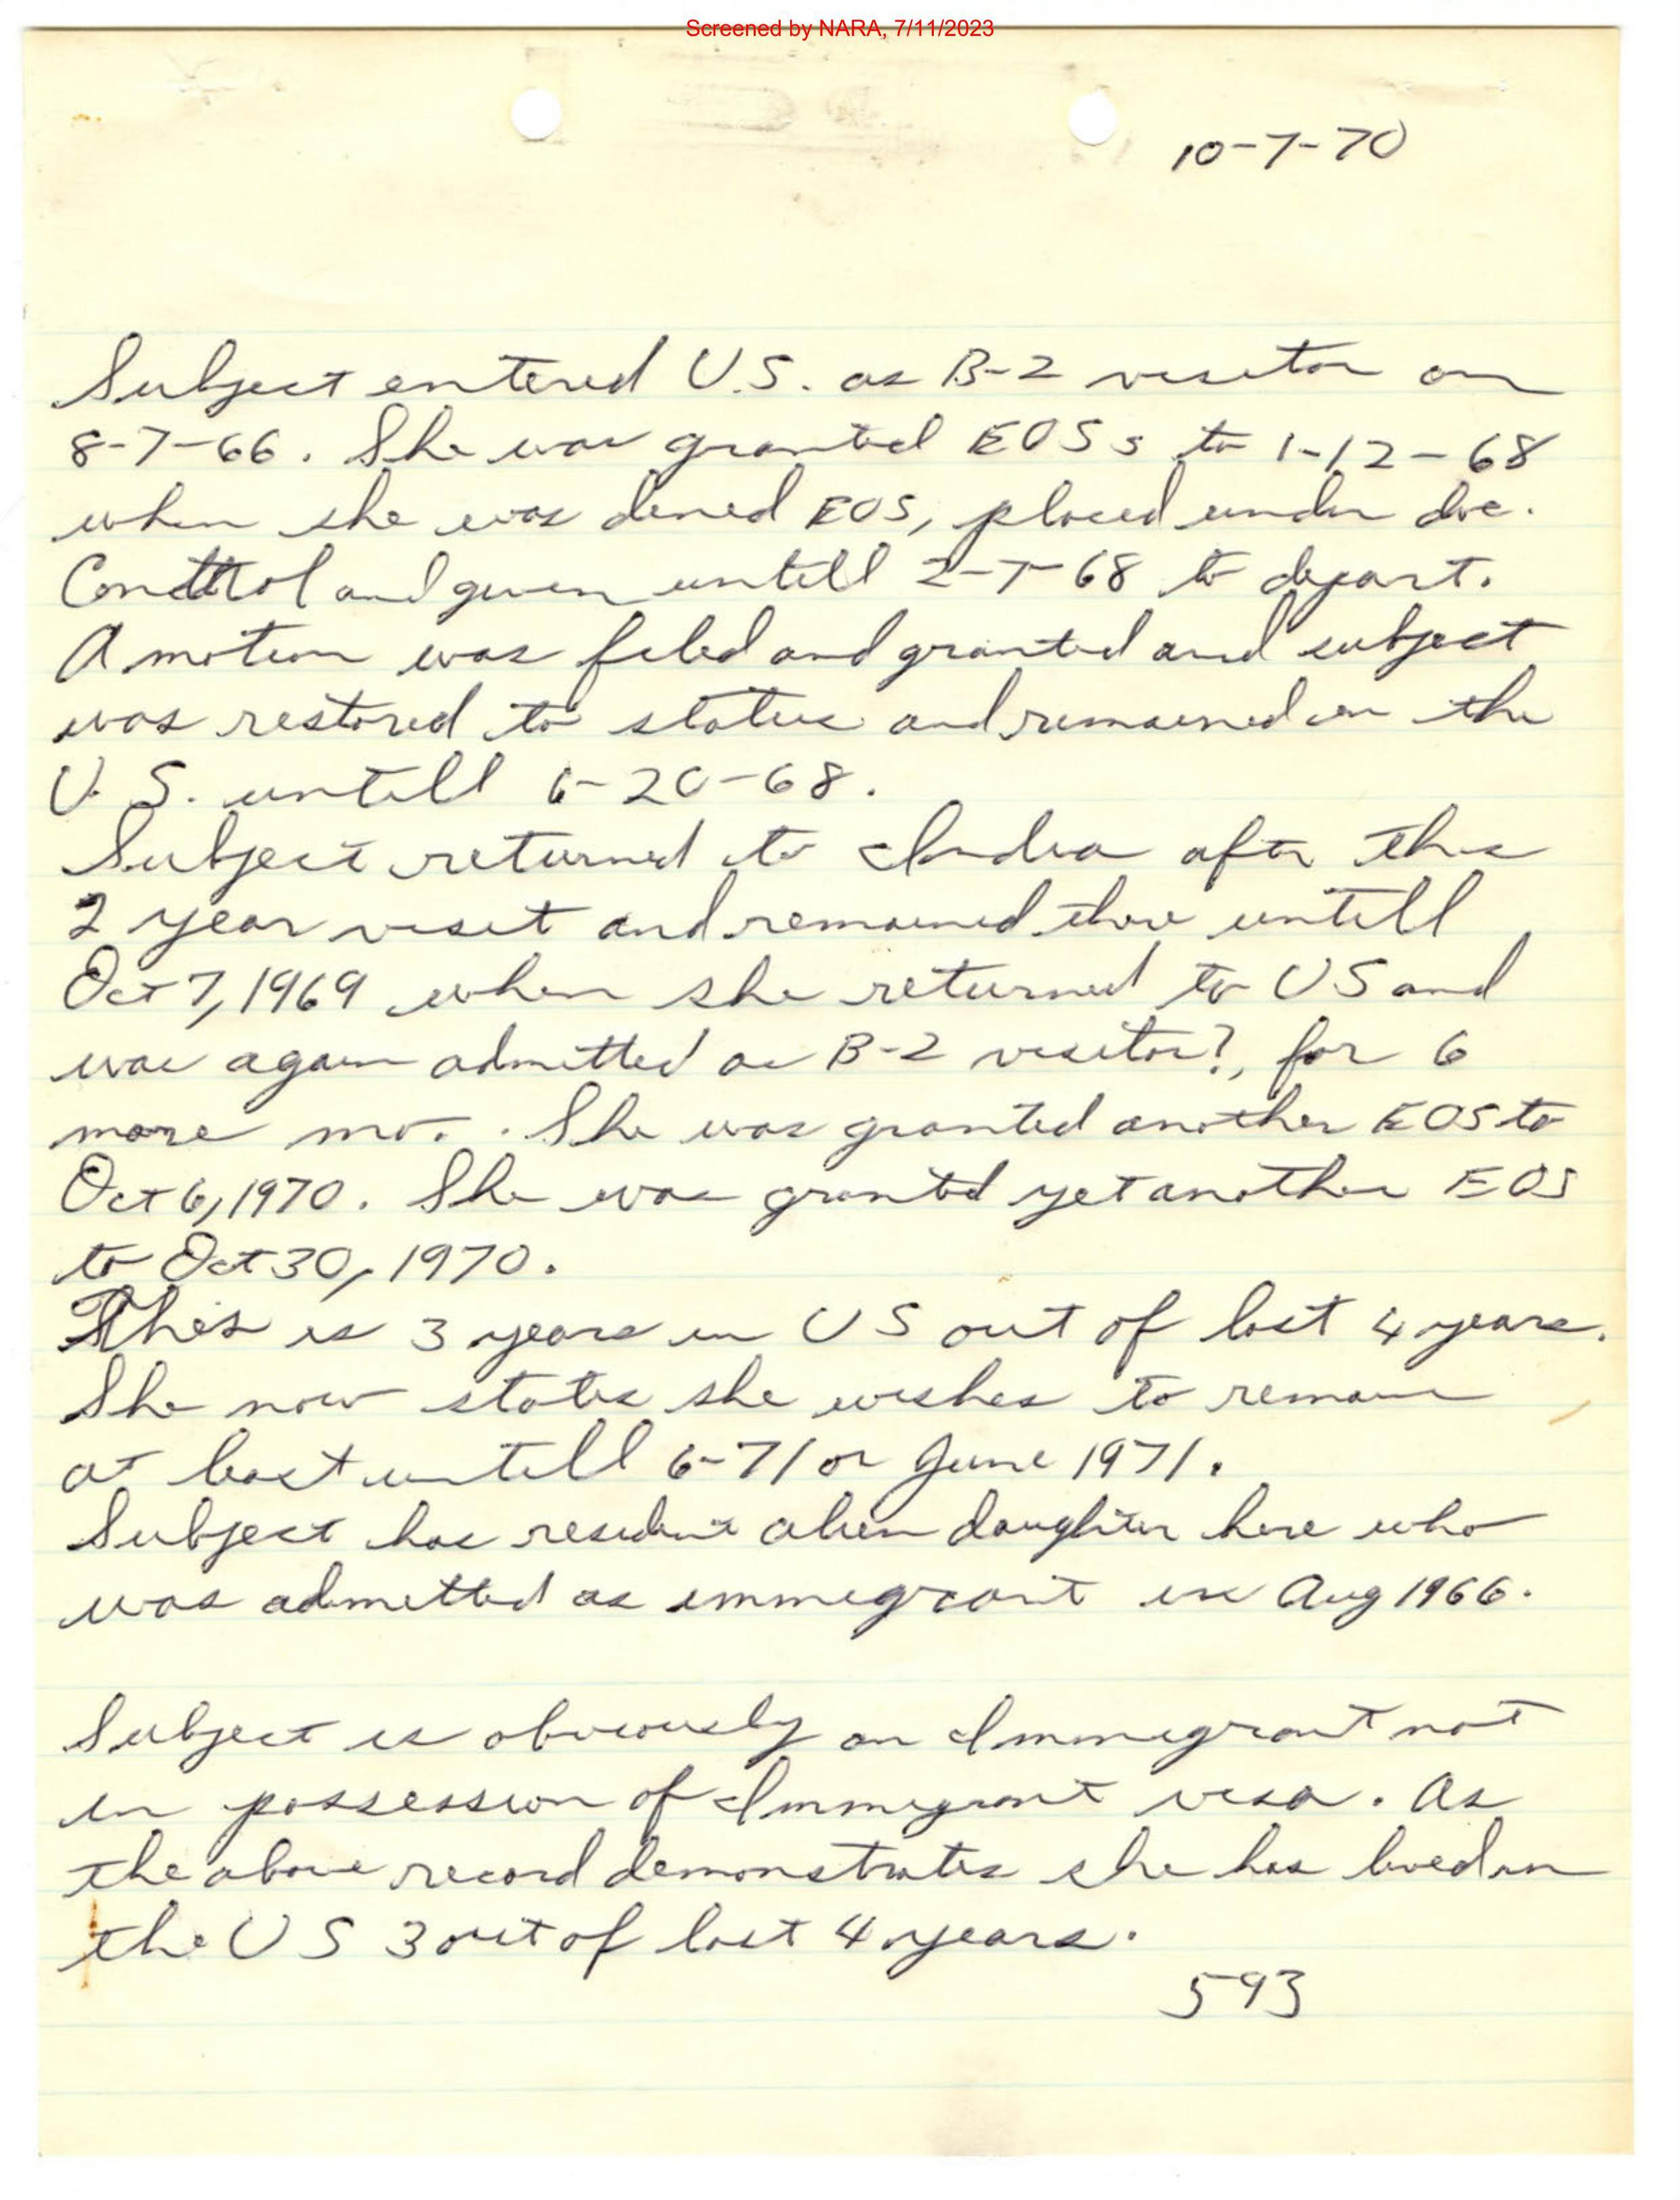 Screened by NARA, 7/11/2023
10-7-70
Subject entered U.S. as B-2 visitor on
8-7-66. She was granted EOSs to 1-12-68
when she was denied EOS, placed under doc.
Conttrol and given untill 2-7-68 to depart.
A motion was filed and granted and subject
was restored to status and remained in the
U.S. untill 6-20-68.
Subject returned to India after this
2 year visit and remained there untill
Oct 7, 1969 when she returned to US and
was again admitted as B-2 visitor?, for 6
more mo. . She was granted another EOS to
Oct 6, 1970. She was granted yet another EOS
to Oct 30, 1970.
This is 3 years in US out of last 4 years.
She now states she wishes to remain
at least untill 6-71 or June 1971.
Subject has resident alien daughter here who
was admitted as immigrant in Aug 1966.
Subject is obviously an Immigrant not
in possession of Immigrant visa. As
the above record demonstrates she has lived in
the US 3 out of last 4 years.
593